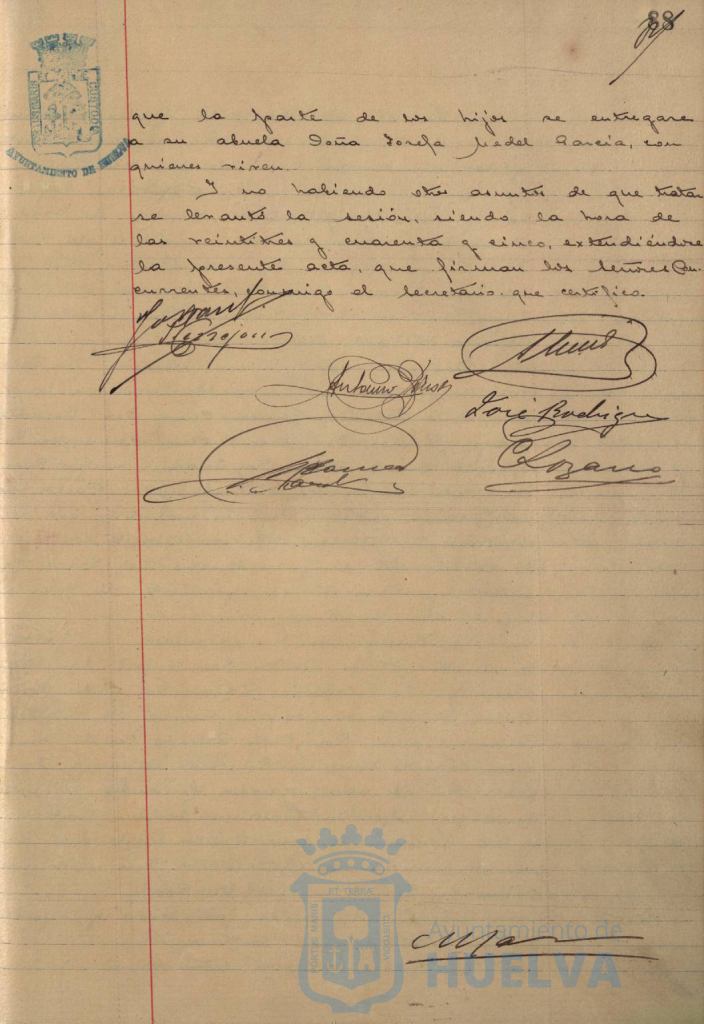 88
que la parte de sus hijos se entregara
a su abuela Doña Josefa Medel García, con
quienes viven.
Y no habiendo otros asuntos de que tratar
se levantó la sesión, siendo la hora de
las veintitres y cuarenta y cinco, extendiéndose
la presente acta, que firman los señores Con-
currentes, conmigo el Secretario, que certifico.
Antonio
José Rodríguez
C Lozano
AYUNTAMIENTO DE HUELVA
PORTUS MARIS ET TERRAE CUSTODIA
Ayuntamiento de
HUELVA